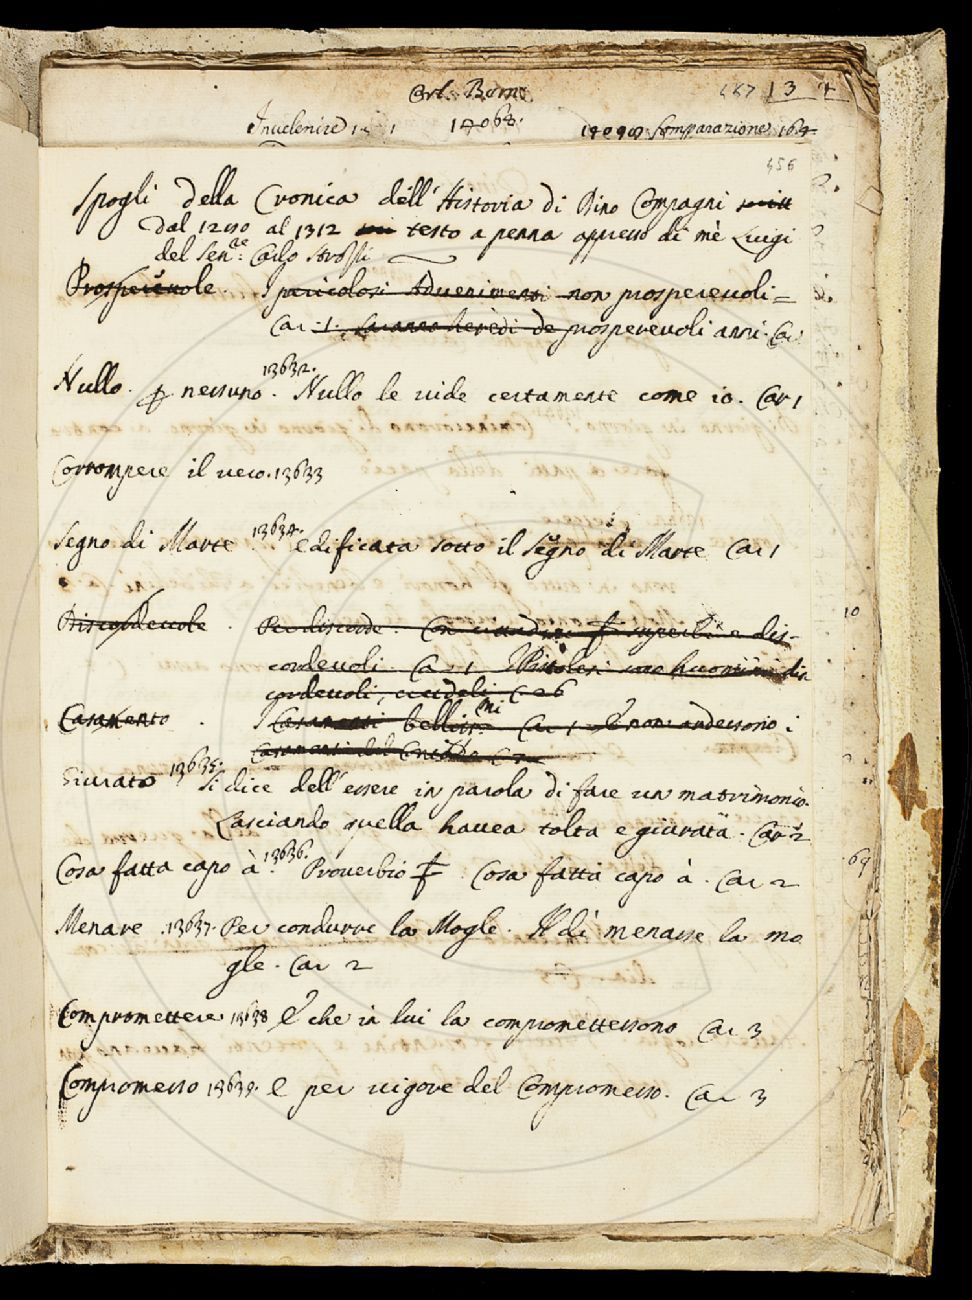 Orl. Born.
187 13 +
Invelenire 13 1 14068. 14098 Comparazione 164
456
Spogli della Cronica dell'Historia di Dino Compagni scritt
dal 1280 al 1312 testo a penna appresso di mè Luigi
del Sen.re Carlo Strozzi
Prosperevole. I pericolosi Advenimenti non prosperevoli =
Car. 1. saranno heredi de prosperevoli anni. Car
Nullo. nessuno. 13632. Nullo le vide certamente come io. Car 1
Corrompere il vero. 13633
Segno di Marte 13634. edificata sotto il segno di Marte Car 1
Discordevole. Per discorde. superbi e dis-
cordevoli. Car 1 I Pistolesi sono huomini dis
cordevoli, crudeli, C 26
Casamento. I Casamenti belliss.mi Car 1 E non andessono i
Casamenti del C 2
Giurato 13635. Si dice dell'essere in parola di fare un matrimonio.
Lasciando quella havea tolta e giurata. Car 2
Cosa fatta capo à. 13636. Proverbio Cosa fatta capo à. Car 2
Menare .13637. Per condurre la Mogle. Il dì menasse la mo
gle. Car 2
Compromettere 13638 E che in lui la compromettessono Car 3
Compromesso 13639. E per vigore del Compromesso. Car 3
10
69